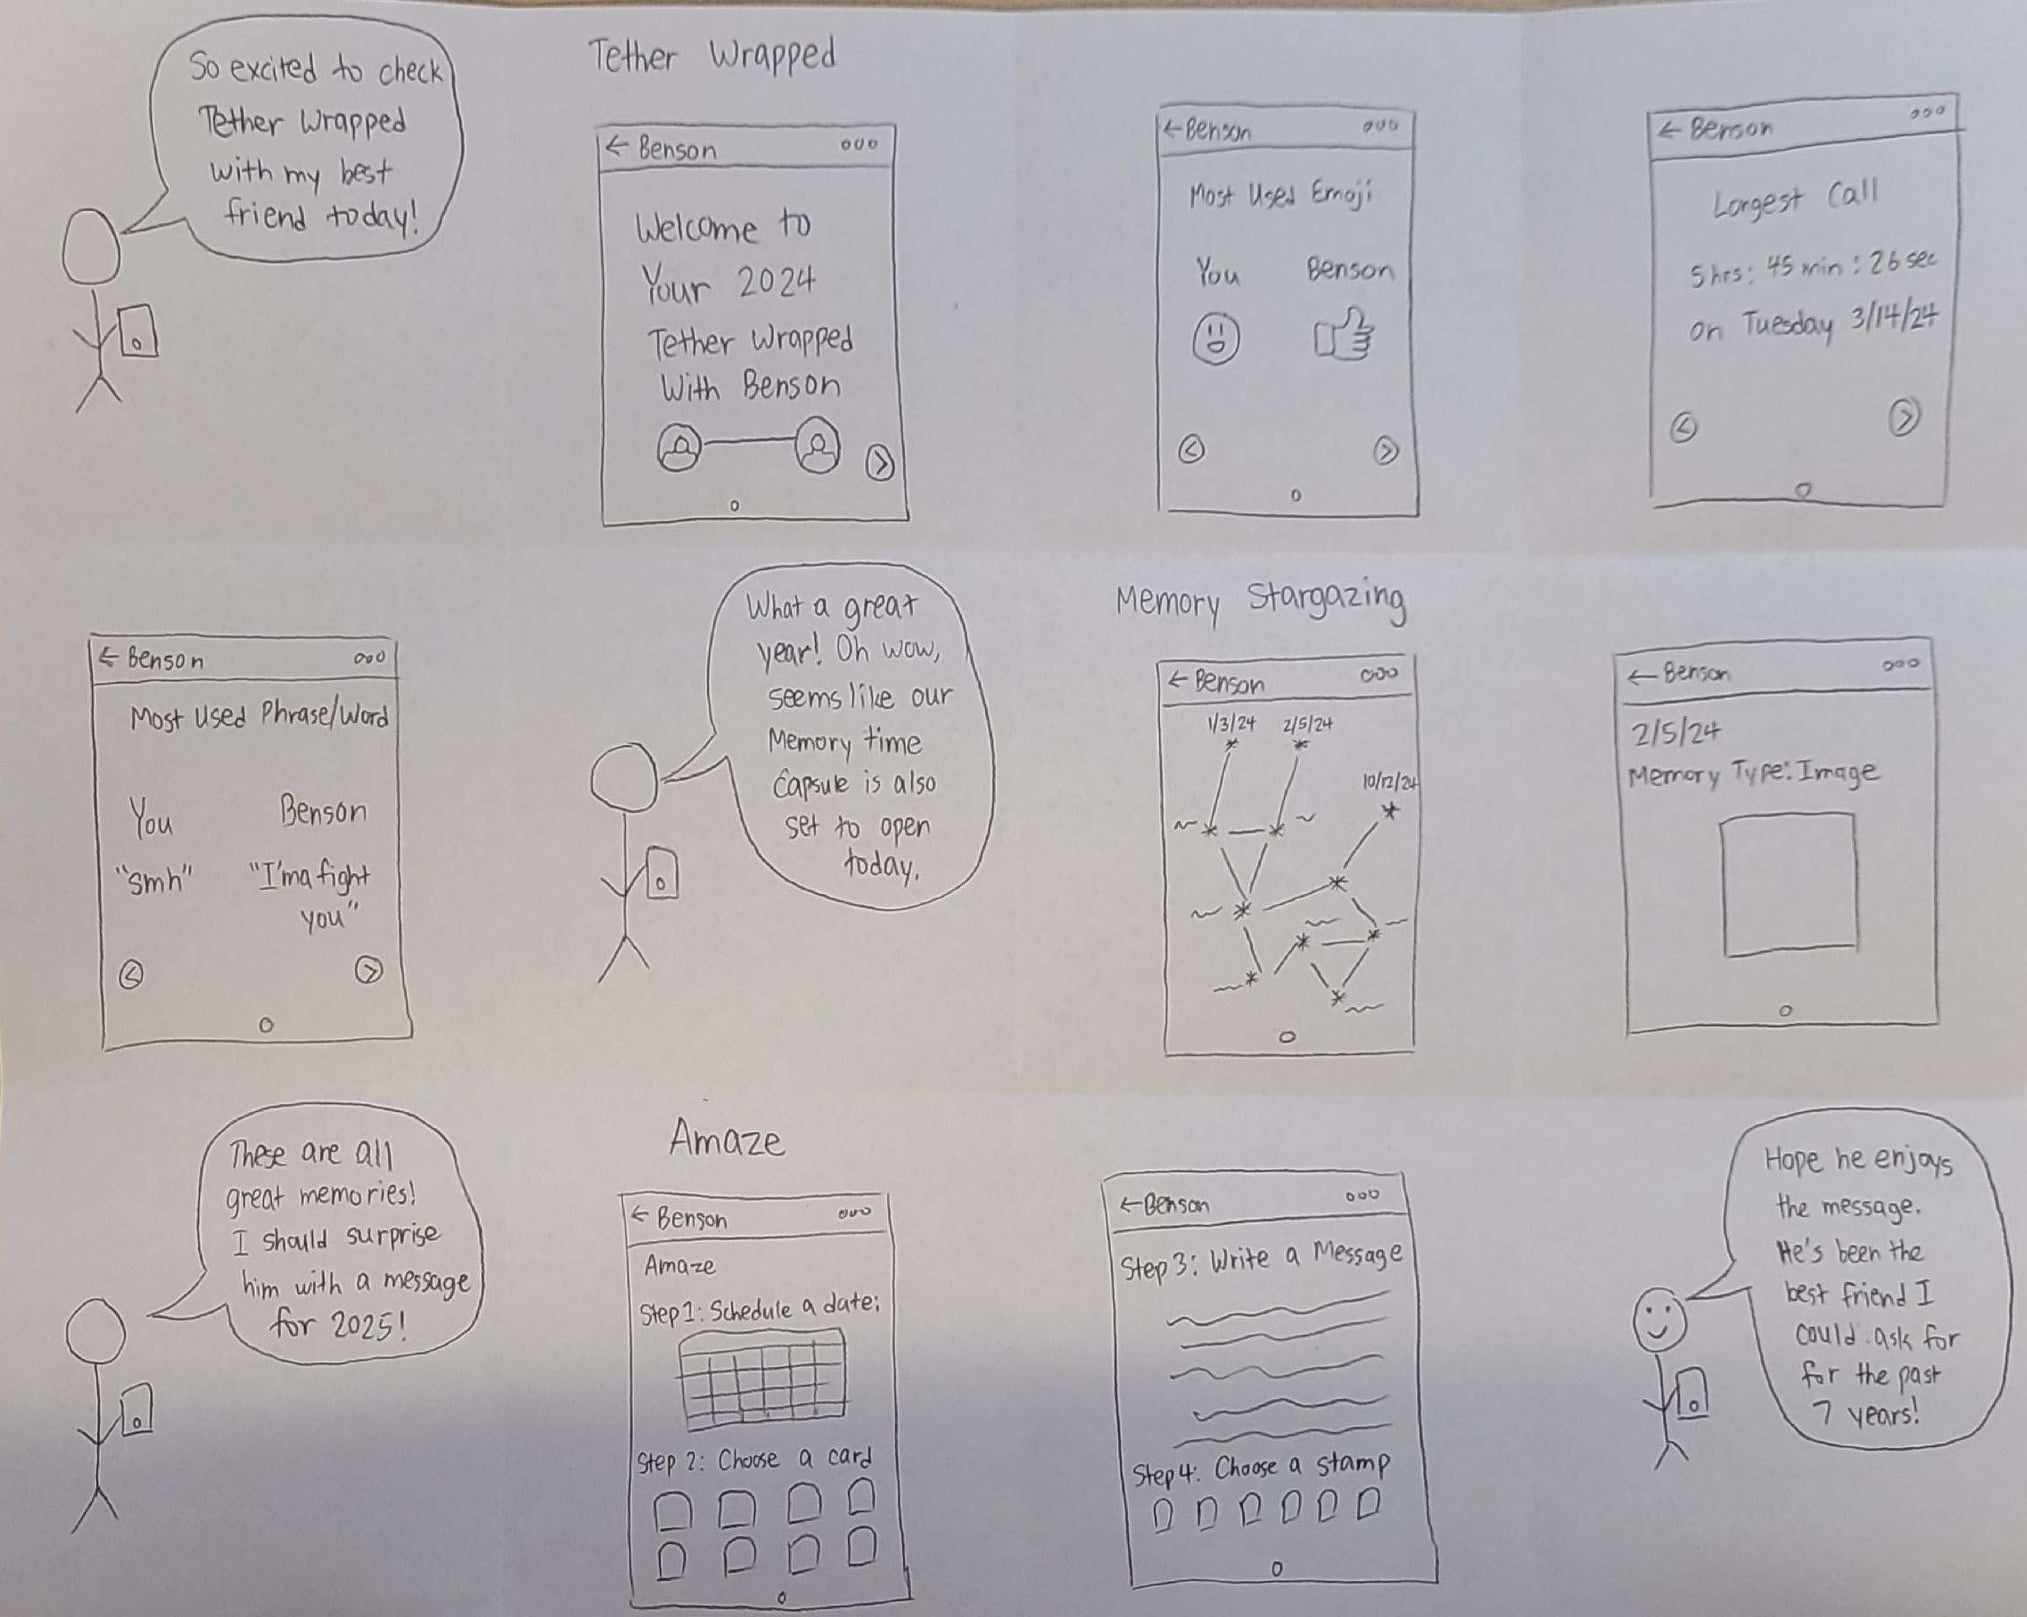 So excited to check
Tether Wrapped
with my best
friend today!
Tether Wrapped
← Benson ooo
Welcome to
Your 2024
Tether Wrapped
With Benson
← Benson ooo
Most Used Emoji
You Benson
← Benson ooo
Longest Call
5 hrs: 45 min: 26 sec
on Tuesday 3/14/24
← Benson ooo
Most Used Phrase/Word
You Benson
"smh" "I'ma fight
you"
What a great
year! Oh wow,
seems like our
Memory time
Capsule is also
set to open
today.
Memory Stargazing
← Benson ooo
1/3/24 2/5/24
10/12/24
← Benson ooo
2/5/24
Memory Type: Image
These are all
great memories!
I should surprise
him with a message
for 2025!
Amaze
← Benson ooo
Amaze
Step 1: Schedule a date:
Step 2: Choose a card
← Benson ooo
Step 3: Write a Message
Step 4: Choose a stamp
Hope he enjoys
the message.
He's been the
best friend I
could ask for
for the past
7 years!